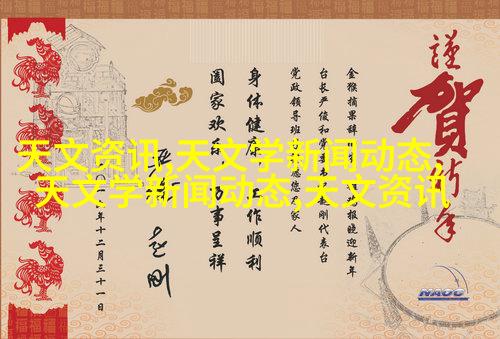 謹賀新年
金猴摘果辞
报晓迎新年
台长严俊和
刚代表台
党政领导班
家人
身体健康 工作顺利
阖家欢乐 万事呈祥
年十二月三十一日
天文资讯,天文学新闻动态,
天文学新闻动态,天文资讯
NAOC